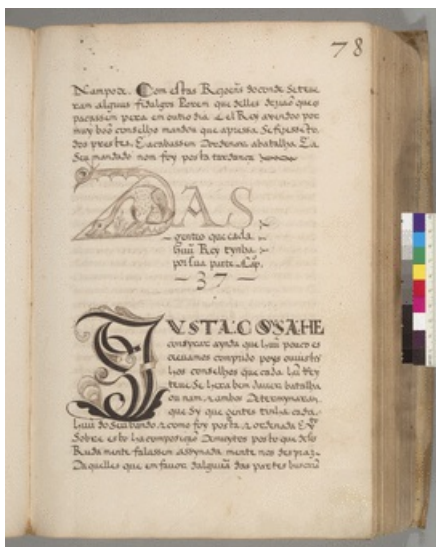 78
Do campo &c. Com estas Rezoens do conde se teue
ram alguns fidalgos Porem que delles deziaõ que o
pasassen pera em outro dia & el Rey avendo por
muy boõ conselho mandou que apressa se fizesse to
dos prestes. E acabassen Dordenar a batalha E a
seu mandado nom foy posta tardança
DAS
gentes que cada
huũ Rey tynha
por sua parte. Cap.
37
JUSTA COSA HE
consyrar aynda que huũ pouco es
creuamos comprido poys ouuistes
hos conselhos que cada huũ Rey
teue, se hera bem dauer batalha
ou nam, & ambos Determynaran
que sy que gentes tinha cada
huũ do seu bando, & como foy posta & ordenada
Sobre esto ha composiçaõ De muytos posto que desto
Ruda mente falassen assynada mente nos despraz
Daquelles que em fauor dalguũa das partes